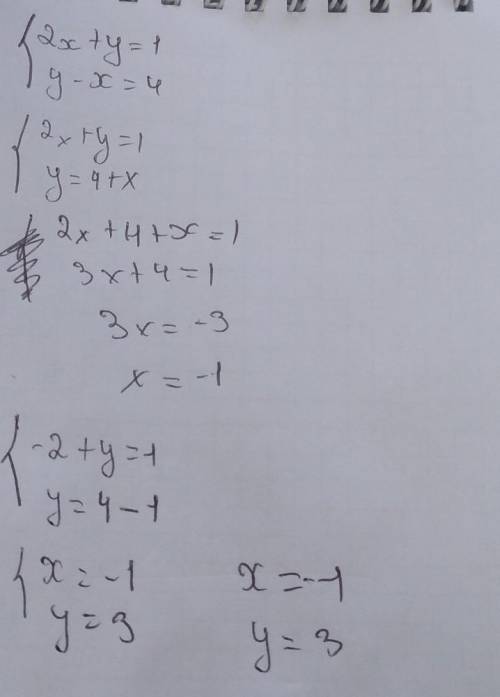 2x+y=1
y-x=4
2x+y=1
y=4+x
2x+4+x=1
3x+4=1
3x=-3
x=-1
-2+y=1
y=4-1
x=-1 x=-1
y=3 y=3